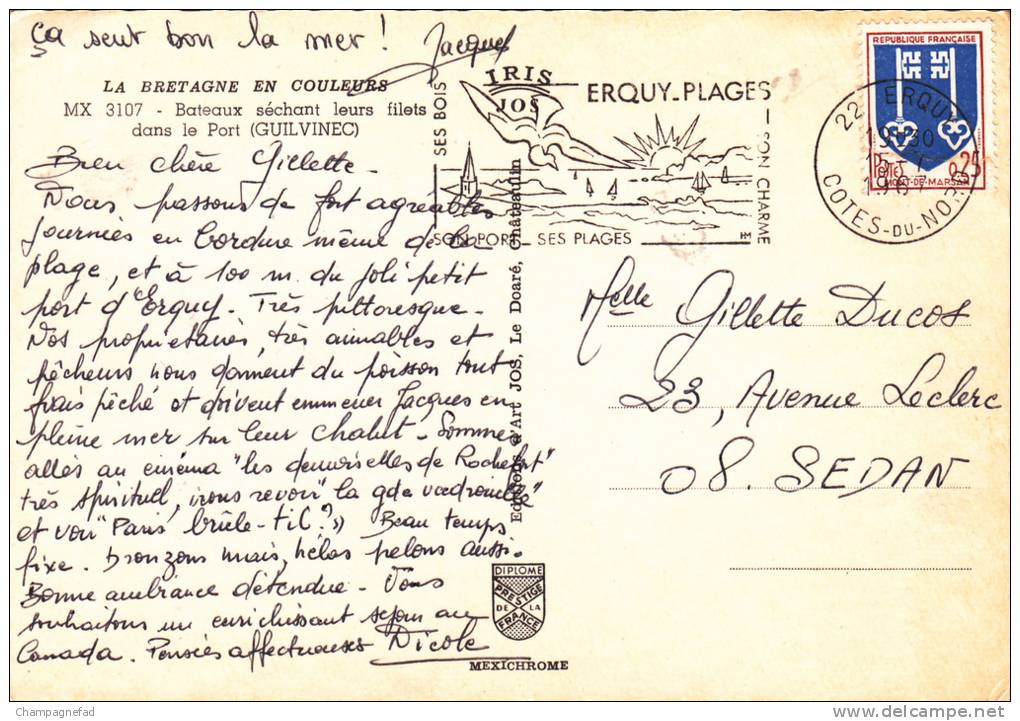 ça sent bon la mer !
Jacques
LA BRETAGNE EN COULEURS
MX 3107 - Bateaux séchant leurs filets
dans le Port (GUILVINEC)
Bien chère Gillette -
Nous passons de fort agréables
journées en bordure même de la
plage, et à 100 m. du joli petit
port d'Erquy. Très pittoresque -
Nos propriétaires, très aimables et
pêcheurs nous donnent du poisson tout
frais pêché et doivent emmener Jacques en
pleine mer sur leur chalut - Sommes
allés au cinéma "les demoiselles de Rochefort"
très spirituel, irons revoir "la gde vadrouille"
et voir "Paris brûle-til ?" Beau temps
fixe. bronzons mais, hélas pelons aussi.
Bonne ambiance détendue - Vous
souhaitons un enrichissant séjour au
Canada. Pensées affectueuses Nicole
Editions d'Art JOS, Le Doaré, Châteaulin
IRIS
JOS
DIPLOME
PRESTIGE
DE LA
FRANCE
MEXICHROME
ERQUY_PLAGES
SES BOIS
SON CHARME
SON PORT - SES PLAGES
HM
REPUBLIQUE FRANÇAISE
0,25
MONT-DE-MARSAN
22 ERQUY
19H30
COTES-DU-NORD
Melle Gillette Ducos
23, Avenue Leclerc
08. SEDAN
Champagnefad
delcampe.net